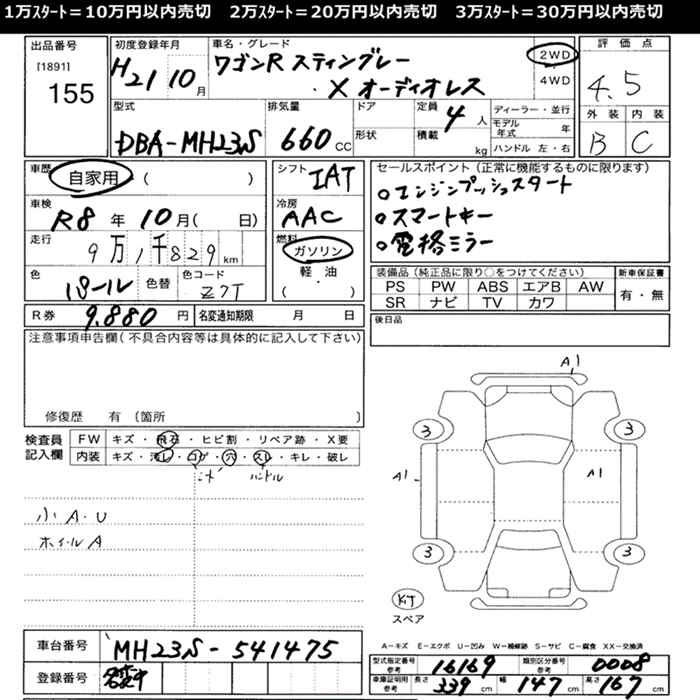 1万ｽﾀｰﾄ＝10万円以内売切　2万ｽﾀｰﾄ＝20万円以内売切　3万ｽﾀｰﾄ＝30万円以内売切
出品番号
[1891]
155
初度登録年月
H21 10月
車名・グレード
ワゴンR スティングレー
・X オーディオレス
2WD
4WD
評価点
4.5
外装 内装
B C
型式
DBA-MH23S
排気量
660 CC
ドア
形状
定員
4人
積載 kg
ディーラー・並行
モデル年式 年
ハンドル 左・右
車歴
自家用 ( )
車検
R8年 10月( 日)
走行
9万1千829km
色
パール
色替
色コード
Z7T
シフト
IAT
冷房
AAC
燃料
ガソリン
軽・油
( )
セールスポイント（正常に機能するものに限ります）
○エンジンプッシュスタート
○スマートキー
○電格ミラー
装備品（純正品に限り○をつけてください）
PS PW ABS エアB AW
SR ナビ TV カワ
新車保証書
有・無
R券 9.880円
名変通知期限 月 日
後日品
注意事項申告欄（不具合内容等は具体的に記入して下さい）
修復歴 有 （箇所 ）
検査員記入欄
FW キズ・飛石・ヒビ割・リペア跡・X要
内装 キズ・汚レ・コゲ・穴・スレ・キレ・破レ
ハンドル
小A・U
ホイールA
A1
3 3
A1 A1
3 3
KIT
スペア
車台番号 MH23S-541475
登録番号
A－キズ E－エクボ U－凹み W－補修跡 S－サビ C－腐食 XX－交換済
型式指定番号 参考 16169
類別区分番号 参考 0008
車庫証明用 参考 長さ 339cm 幅 147cm 高さ 167cm